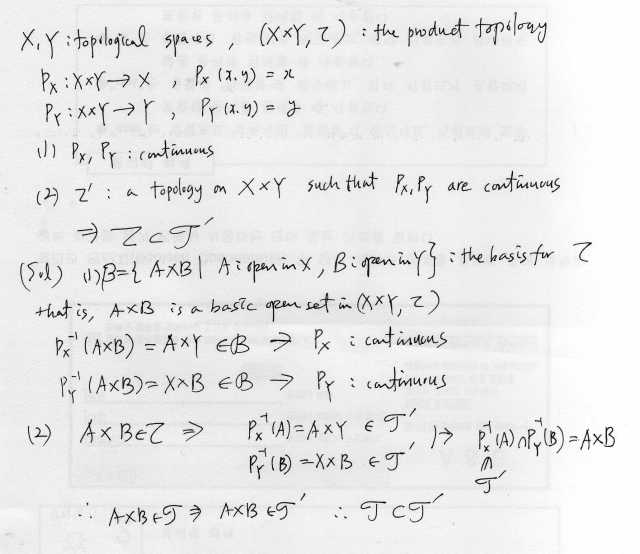 X, Y : topological spaces , (X×Y, τ) : the product topology
P_X : X×Y → X , P_X (x, y) = x
P_Y : X×Y → Y , P_Y (x, y) = y
(1) P_X, P_Y : continuous
(2) τ' : a topology on X×Y such that P_X, P_Y are continuous
⇒ τ ⊂ 𝒯'
(Sol) (1) B = { A×B | A : open in X , B : open in Y } : the basis for τ
that is, A×B is a basic open set in (X×Y, τ)
P_X^{-1} (A×B) = A×Y ∈ B → P_X : continuous
P_Y^{-1} (A×B) = X×B ∈ B → P_Y : continuous
(2) A×B ∈ τ ⇒ P_X^{-1}(A) = A×Y ∈ 𝒯' , P_Y^{-1}(B) = X×B ∈ 𝒯' ) → P_X^{-1}(A) ∩ P_Y^{-1}(B) = A×B ∈ 𝒯'
∴ A×B ∈ 𝒯 ⇒ A×B ∈ 𝒯' ∴ 𝒯 ⊂ 𝒯'